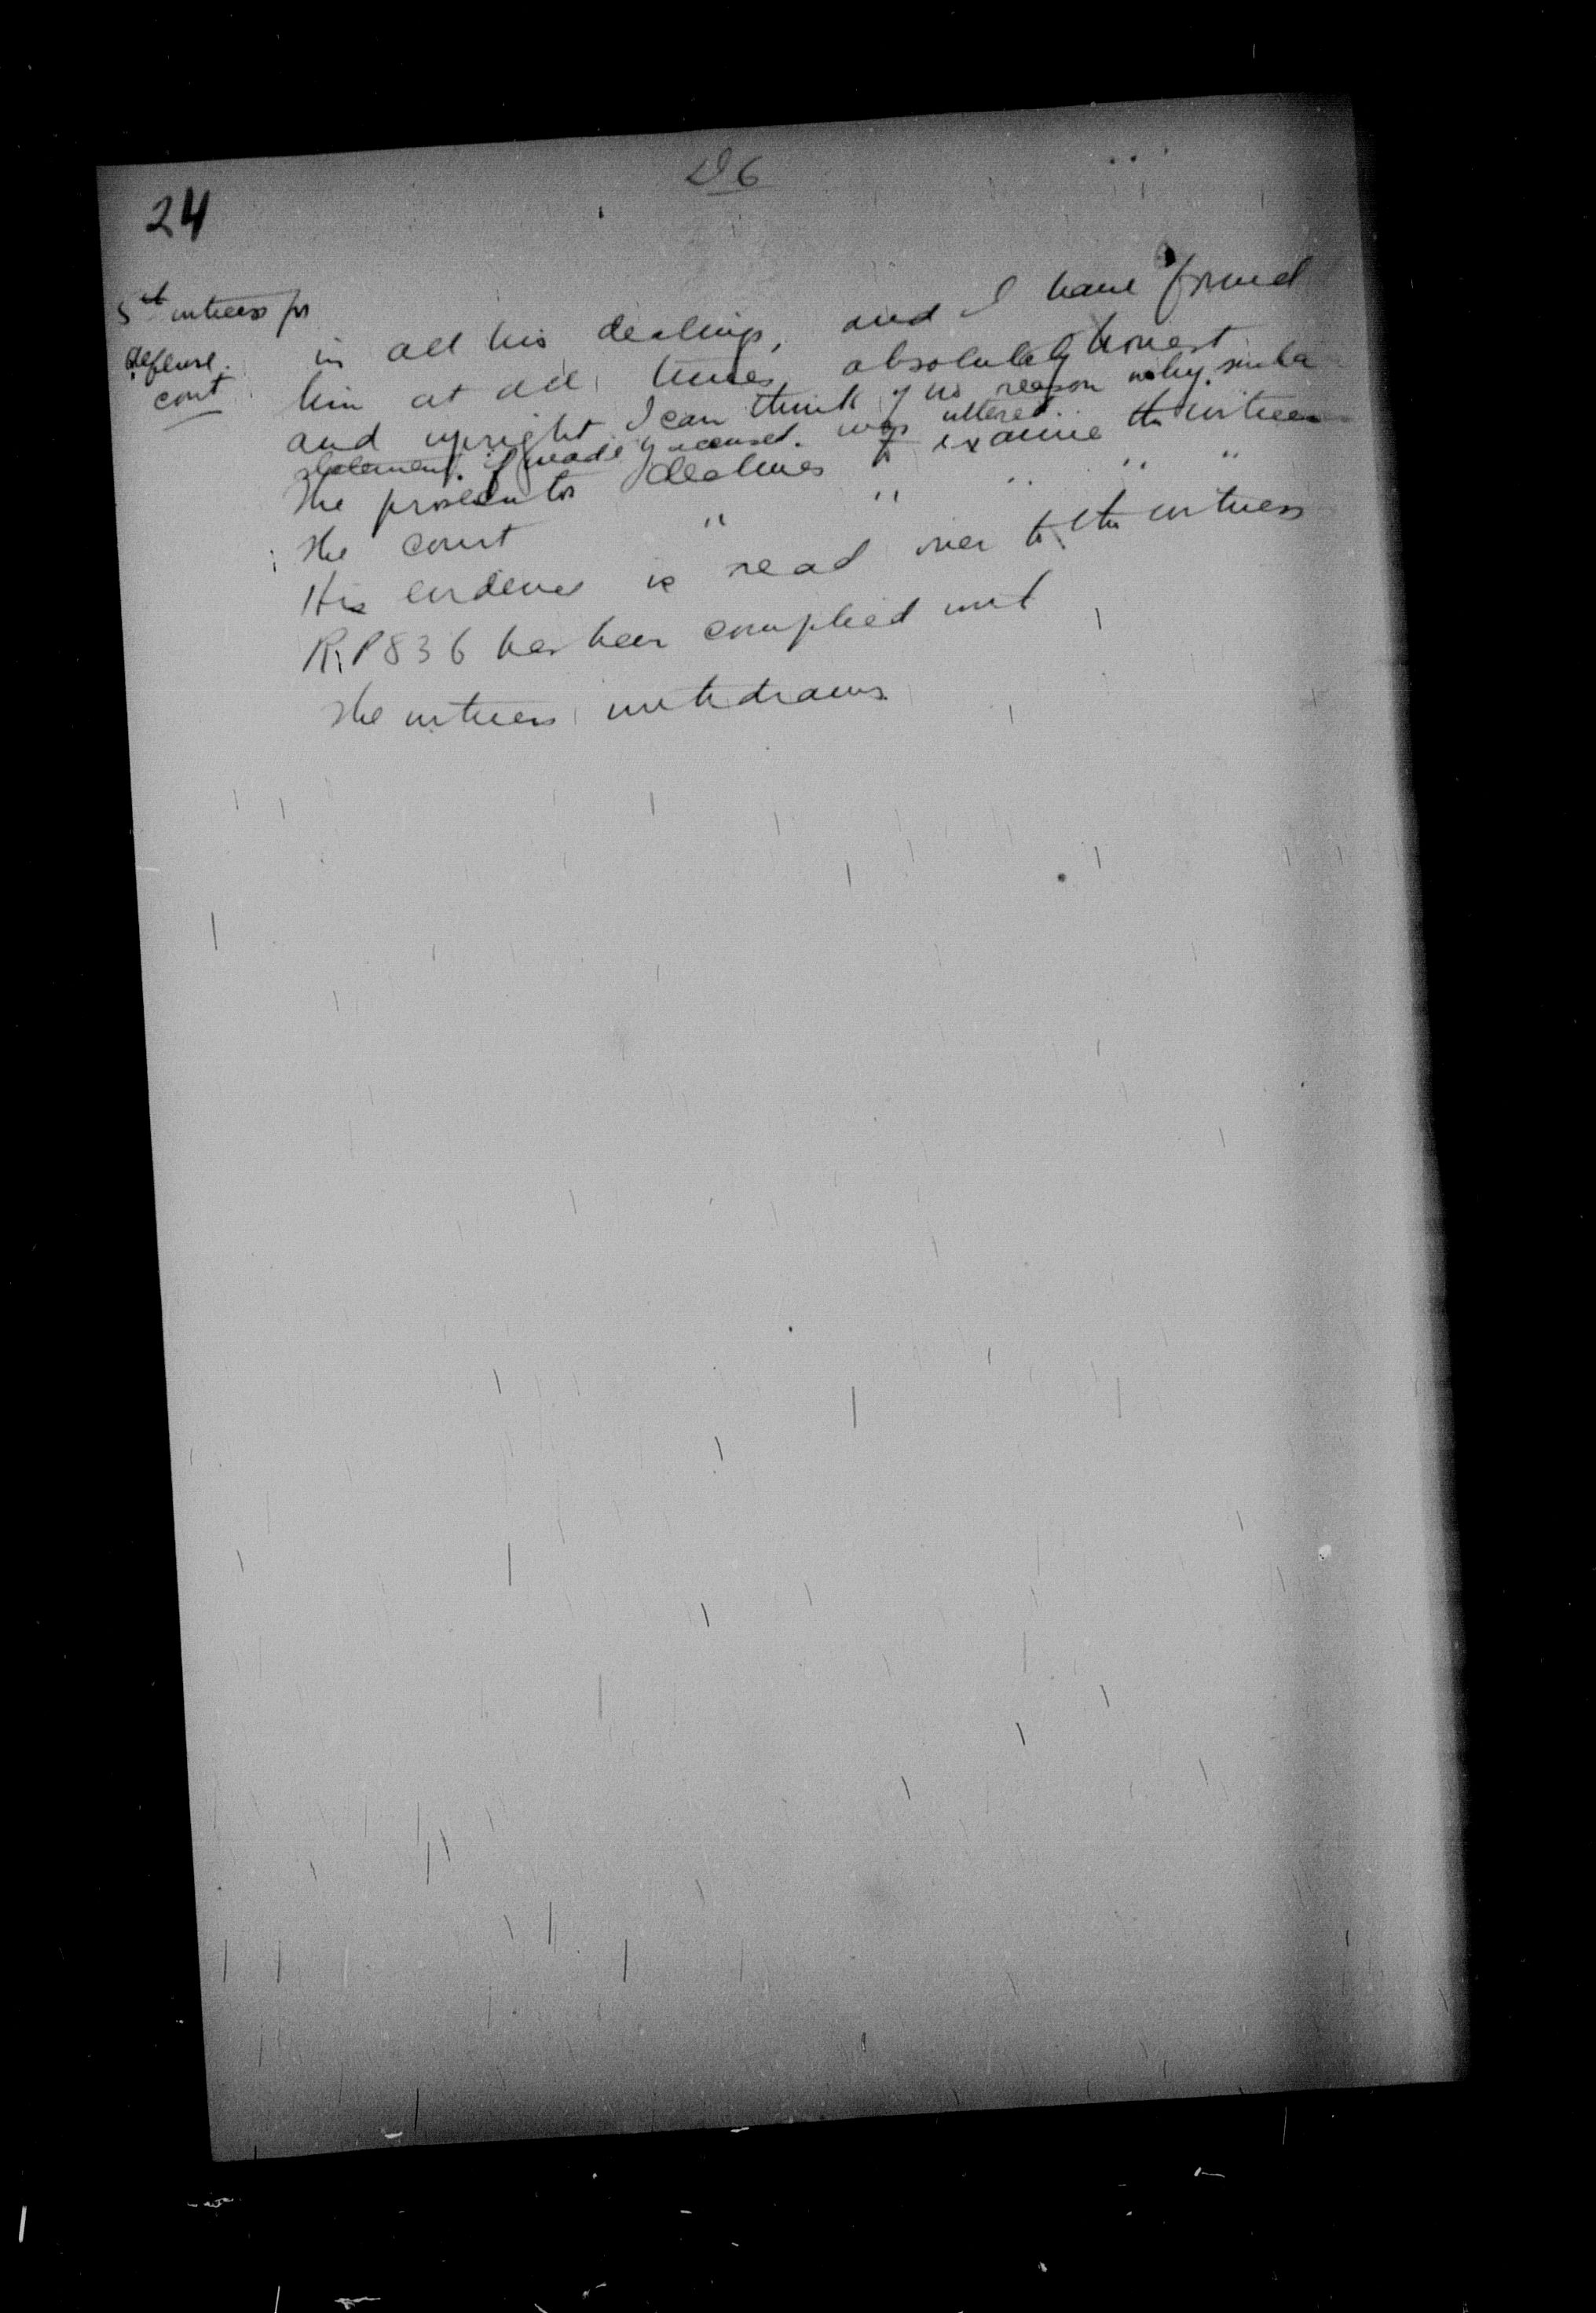 D6
24
5th witness for
defence.
cont
in all his dealings, and I have found
him at all times absolutely honest
and upright. I can think of no reason why such a
statement if made by accused. was uttered.
The prosecutor declines to examine the witness
The court " " " " "
His evidence is read over to the witness
R.P 83 b has been complied with
The witness withdraws